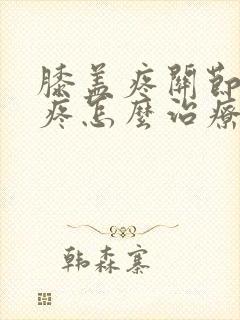 膝盖疼關節
疼怎麼治療
韩森寨